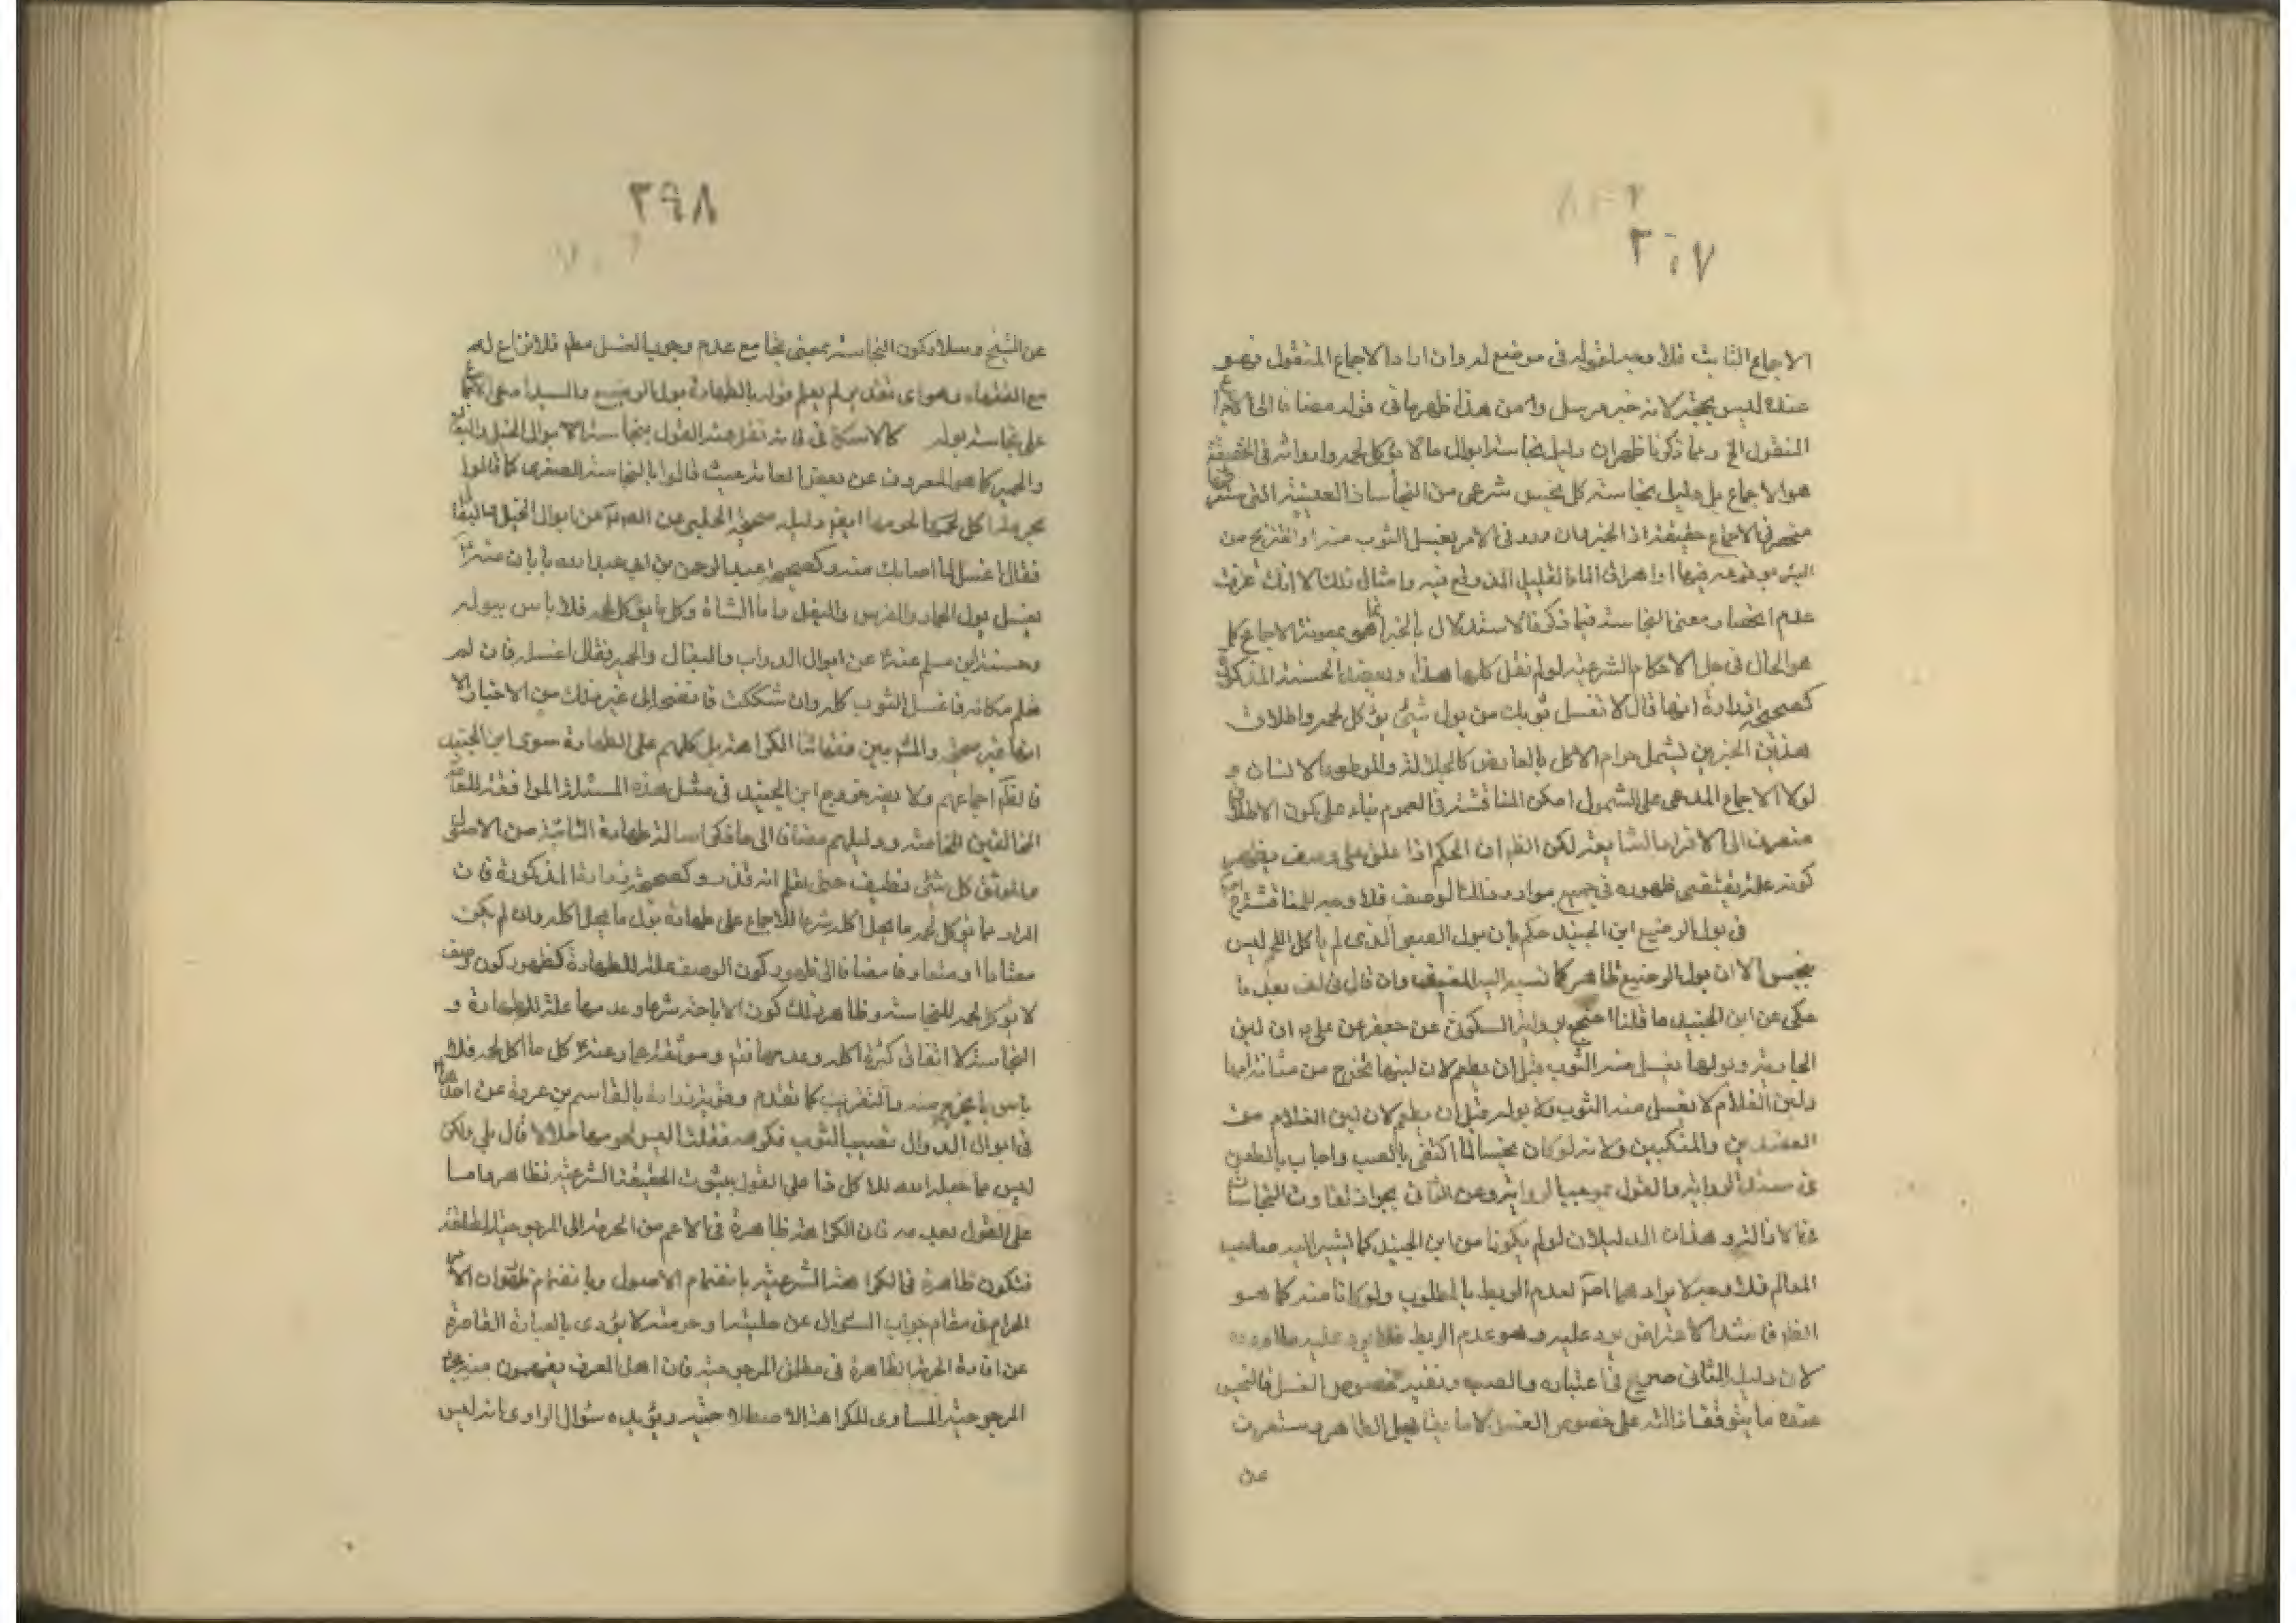 ٣٩٧
الاجماع الثابت فلا وجه لقوله في موضع له وان اراد الاجماع المنقول فهو
عنده ليس بحجة لانه خبر مرسل ومن هذا ظهر ما في قوله مضافا الى الاجماع
المنقول الخ ومما ذكرنا ظهر ان دليل نجاسة ابوال ما لا يؤكل لحمه وارواثه في الحقيقة
هو الاجماع بل دليل نجاسة كل نجس شرعي من النجاسات العشرة التي
منحصر في الاجماع حقيقة اذ الخبر وان ورد في الامر بغسل الثوب منه او النزح من
البئر بوقوعه فيها او اهراق الماء القليل الذي وقع فيه وامثال ذلك الا انك عرفت
عدم انحصار معنى النجاسة فيما ذكر فالاستدلال بالخبر انما هو بمعونة الاجماع كما
هو الحال في جل الاحكام الشرعية لو لم نقل كلها هذا وبعد الحسنة المذكورة
كصحيحة زرارة انهما قال لا تغسل ثوبك من بول شيء يؤكل لحمه واطلاق
هذين الخبرين يشمل حرام الاكل بالعارض كالجلالة والموطوء الانسان و
لولا الاجماع المدعى على الشمول امكن المناقشة في العموم بناء على كون الاطلاق
منصرف الى الافراد الشايعة لكن الظ ان الحكم اذا علق على وصف يظهر
كونه علة يقتضي ظهوره في جميع موارد ذلك الوصف فلا وجه للمناقشة
في بول الرضيع ابن الجنيد حكم بان بول الصبي الذي لم ياكل اللحم ليس
بنجس الا ان بول الرضيع طاهر كما نسب اليه المصنف وان قال في لف بعد ما
حكى عن ابن الجنيد ما قلنا احتج برواية السكوني عن جعفر عن علي ان لبن
الجارية وبولها يغسل منه الثوب قبل ان يطعم لان لبنها يخرج من مثانة امها
ولبن الغلام لا يغسل منه الثوب ولا بوله قبل ان يطعم لان لبن الغلام من
العضدين والمنكبين ولانه لو كان نجسا لما اكتفى بالصب واجاب بالطعن
في سند الرواية والقول بموجب الرواية وعن الثاني بجواز تفاوت النجاسات
في الازالة وهذان الدليلان لو لم يكونا من ابن الجنيد كما يشير اليه صاحب
المعالم فلا وجه لايرادهما اصلا لعدم الربط بالمطلوب ولو كانا منه كما هو
الظ فا الاعتراض يرد عليه وهو عدم الربط فلا يرد عليه ما اورده
لان دليله الثاني صريح في اعتباره والصب ونفيه خصوص الغسل فالنجس
عنده ما يتوقف ازالته على خصوص الغسل لا ما يقابل الطاهر وستعرف
عن
٣٩٨
عن الشيخ وسلار كون النجاسة بمعنى يجامع عدم وجوب الغسل مطم فلا نزاع له
مع الفقهاء وهو اي نفسه لم يعلم قوله بالطهارة بول الرضيع والسيد ادعى الاجماع
على نجاسة بوله كالاسكافي فانه نقل عنه القول بنجاسة الابوال الخيل والبغال
والحمير كما هو المعروف عن بعض العامة حيث قالوا بالنجاسة الصغرى كما قالوا
بحرمة اكل لحومها ايضا دليله صحيحة الحلبي عن الصم عن ابوال الخيل والبغال
فقال اغسل ما اصابك منه وكصحيحة عبد الرحمن بن ابي عبد الله بابان عنه
يغسل بول الحمار والفرس والبغل واما الشاة وكل ما يؤكل لحمه فلا باس ببوله
وحسنة ابن مسلم عنه عن ابوال الدواب والبغال والحمير فقال اغسله فان لم
تعلم مكانه فاغسل الثوب كله وان شككت فانضحه الى غير ذلك من الاخبار الا
انها غير صحيحة والمشهور بين فقهائنا الكراهة بل كلهم على الطهارة سوى ابن الجنيد
فالظم اجماعهم ولا يضر خروج ابن الجنيد في مثل هذه المسئلة الموافقة للعامة
المخالفين للخاصة ودليلهم مضافا الى ما ذكر اصالة طهارة الثابتة من الاصول
والموثق كل شيء نظيف حتى تعلم انه قذر وكصحيحة زرارة المذكورة فان
المراد مما يؤكل لحمه ما يحل اكله شرعا للاجماع على طهارة بول ما يحل اكله وان لم يكن
معتادا او متعارفا مضافا الى ظهور كون الوصف علة للطهارة كظهور كون وصف
لا يؤكل لحمه للنجاسة وظاهر ذلك كون الاباحة شرعا وعدمها علة للطهارة و
النجاسة لا اتفاق كثرة اكله وعدمها فتم وموثقة عمار عنه كل ما اكل لحمه فلا
باس بما يخرج منه والتقريب كما تقدم وقوية زرارة بالقاسم بن عروة عن احدهما
في ابوال الدواب تصيب الثوب فكرهه فقلت اليس لحومها حلالا قال بلى ولكن
ليس مما جعله الله للاكل فما على القول بثبوت الحقيقة الشرعية فظاهر واما
على القول بعدمه فان الكراهة ظاهرة في الاعم من الحرمة الى المرجوحية المطلقة
فتكون ظاهرة في الكراهة الشرعية بانضمام الاصول وبانضمام ان
الحرام في مقام جواب السؤال عن حليتها وحرمته لا يؤدى بالعبارة القاصرة
عن افادة الحرمة الظاهرة في مطلق المرجوحية فان اهل العرف يفهمون منه
المرجوحية المساوى للكراهة الاصطلاحية ويؤيده سؤال الراوى انه ليس